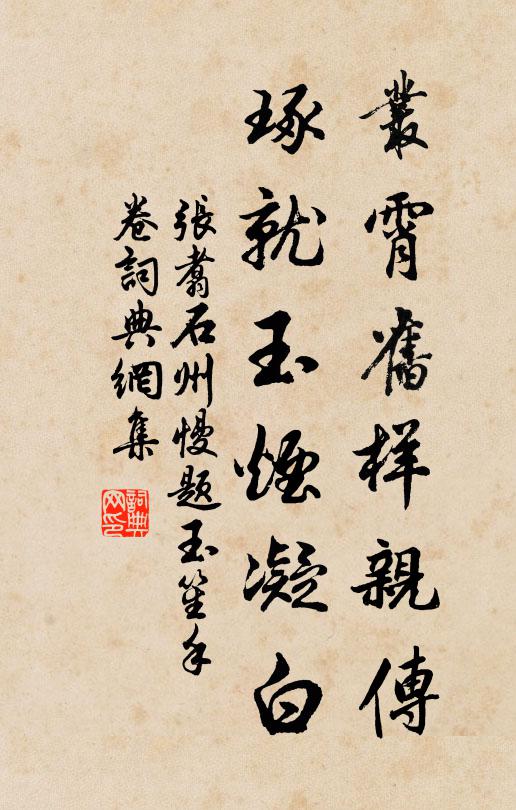 叢霄舊样親傳
琢就玉煙凝白
張翥石州慢題玉笙手
卷詞典網集
詞典網印